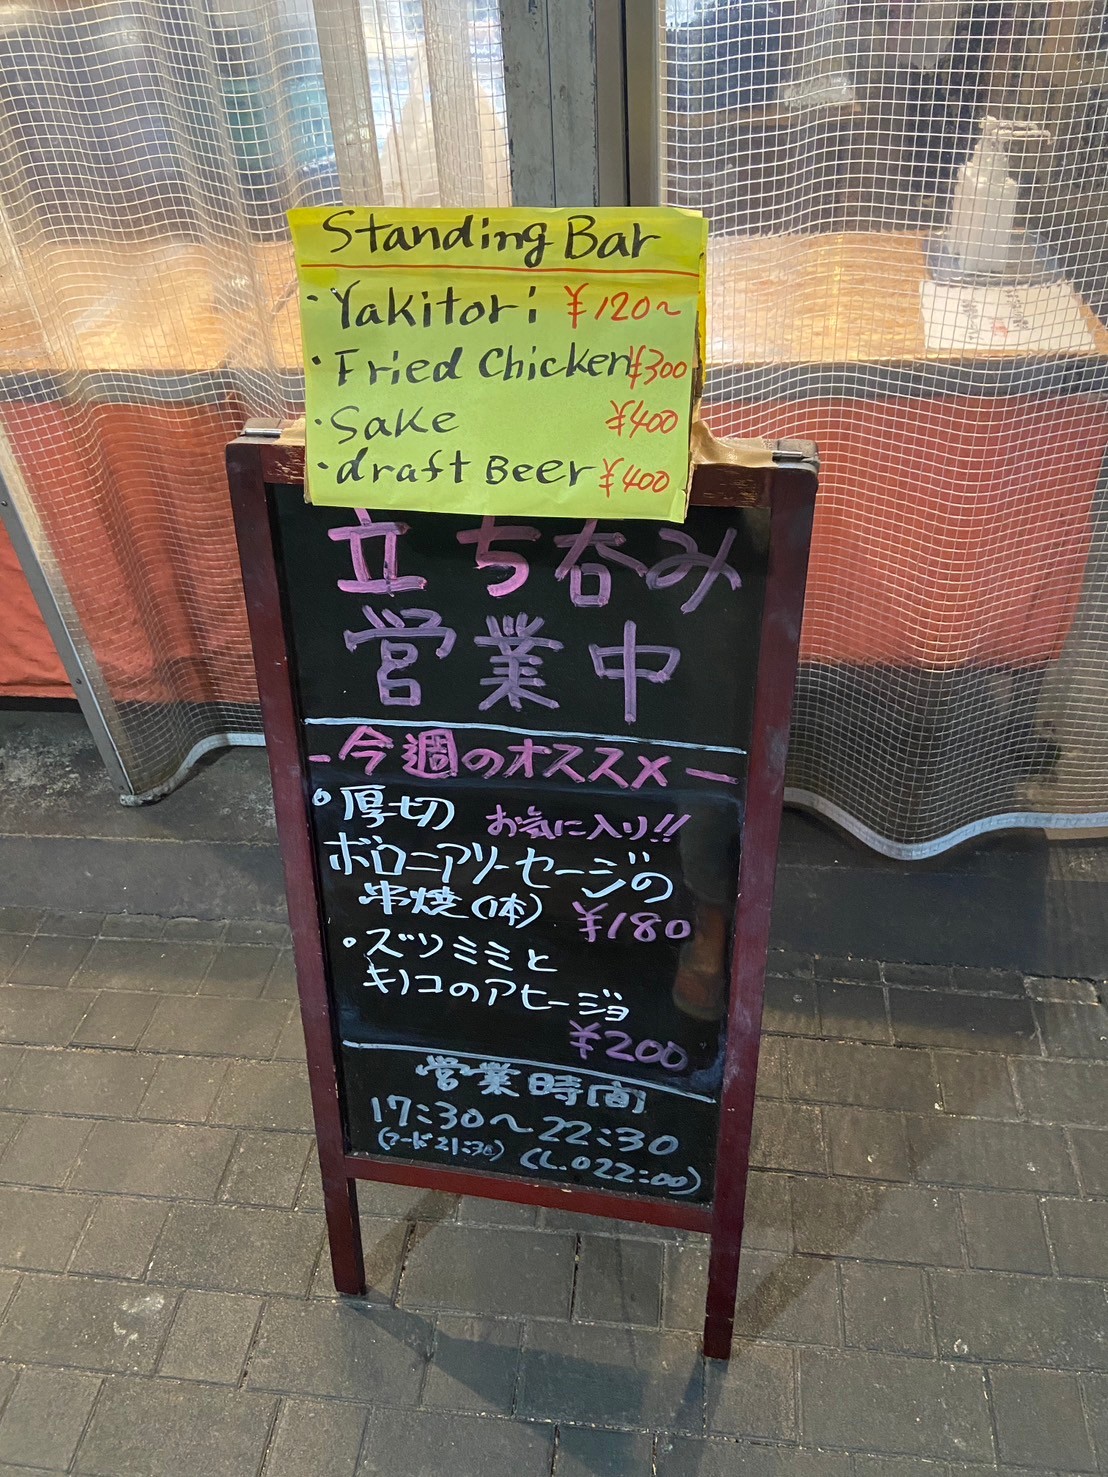 Standing Bar
・Yakitori ¥120～
・Fried Chicken ¥300
・Sake ¥400
・draft Beer ¥400
立ち呑み
営業中
-今週のオススメ-
○厚切 お気に入り!!
ボロニアソーセージの
串焼(1本) ¥180
○ズワミミと
キノコのアヒージョ
¥200
営業時間
17:30～22:30
(フード21:30) (L.O22:00)